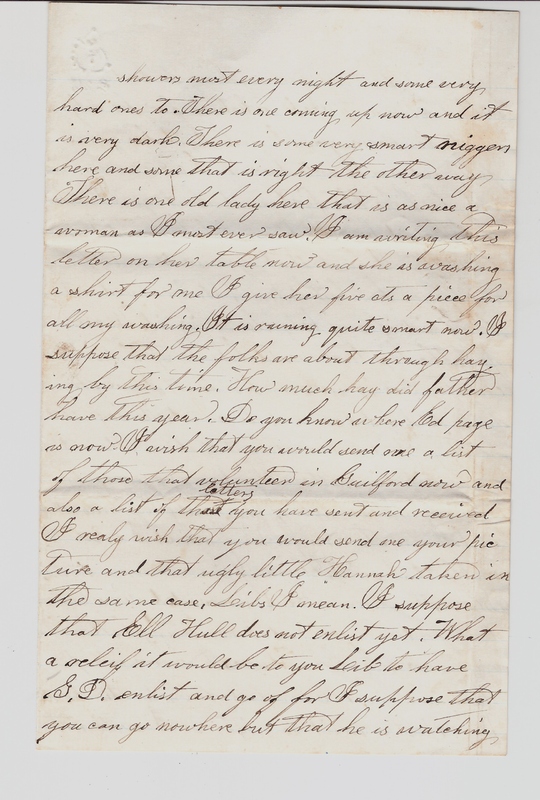 showers most every night and some very
hard ones to. There is one coming up now and it
is very dark. There is some very smart niggers
here and some that is right the other way
There is one old lady here that is as nice a
woman as I most ever saw. I am writing this
letter on her table now and she is washing
a shirt for me I give her five cts a piece for
all my washing. It is raining quite smart now. I
suppose that the folks are about through hay
ing by this time. How much hay did father
have this year. Do you know where Ed page
is now. I wish that you would send me a list
of those that volunteerd in Guilford now and
also a list of the letters you have sent and received
I realy wish that you would send me your pic
ture and that ugly little "Hannah" taken in
the same case, Leibs I mean. I suppose
that Ell Hull does not enlist yet. What
a releif it would be to you Leib to have
E. D. enlist and go of for I suppose that
you can go nowhere but that he is watching